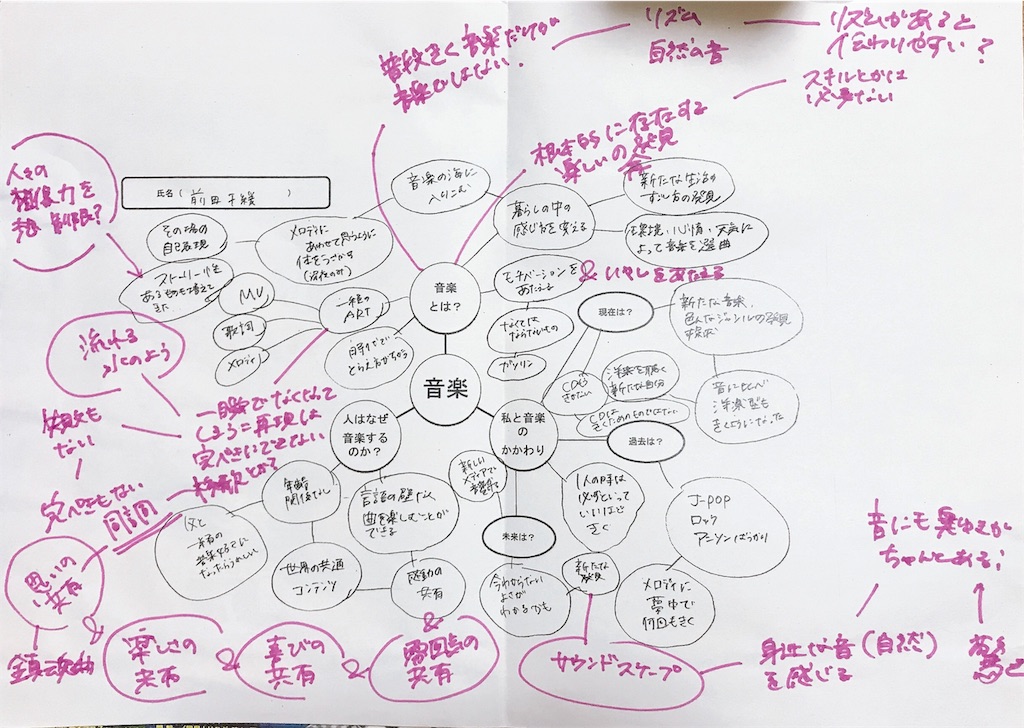 普段きく音楽だけが
音楽でしはない.
リズム
自然の音
リズムがあると
伝わりやすい?
スキルとかは
必要ない
根本的に存在する
楽しいの発見
人々の
想像力を
制限?
氏名(
)
音楽の海に
入りこむ
暮らしの中の
感じ方を変える
新たな生活の
すごし方の発見
環境・心情・天気に
よって音楽を選曲
その場の
自己表現
メロディに
あわせて思うように
体をうごかす
ストーリー性
MV
歌詞
メロディ
一種の
ART
音楽
とは?
自分で
とらえ方がちがう
モチベーションを
あたえる
& いやしをあたえる
なくては
ならないもの
ガソリン
現在は?
新たな音楽、
色んなジャンルの発見
洋楽を聴く
新たな自分
CDは
きくためのものではない
洋楽も
きくようになった
流れる
水のよう
音楽
人はなぜ
音楽する
のか?
私と音楽
の
かかわり
過去は?
未来は?
一瞬でなくなって
しまう=再現は
完ぺきにできない
失敗も
ない
完ぺきもない
同調
年齢
関係なし
言語の壁なく
曲を楽しむことが
できる
新しい
メディアで
1人の時は
必ずといって
いいほど
きく
J-pop
ロック
アニソンばっかり
父と
一緒の
世界の共通
コンテンツ
感動の
共有
今わからない
よさが
わかるかも
新たな
発見
メロディに
夢中で
何回もきく
音にも
ちゃんとある!
思いの
共有
&
鎮魂曲
楽しさの
共有
&
喜びの
共有
&
雰囲気の
共有
&
サウンドスケープ
身近な音(自然)
を感じる